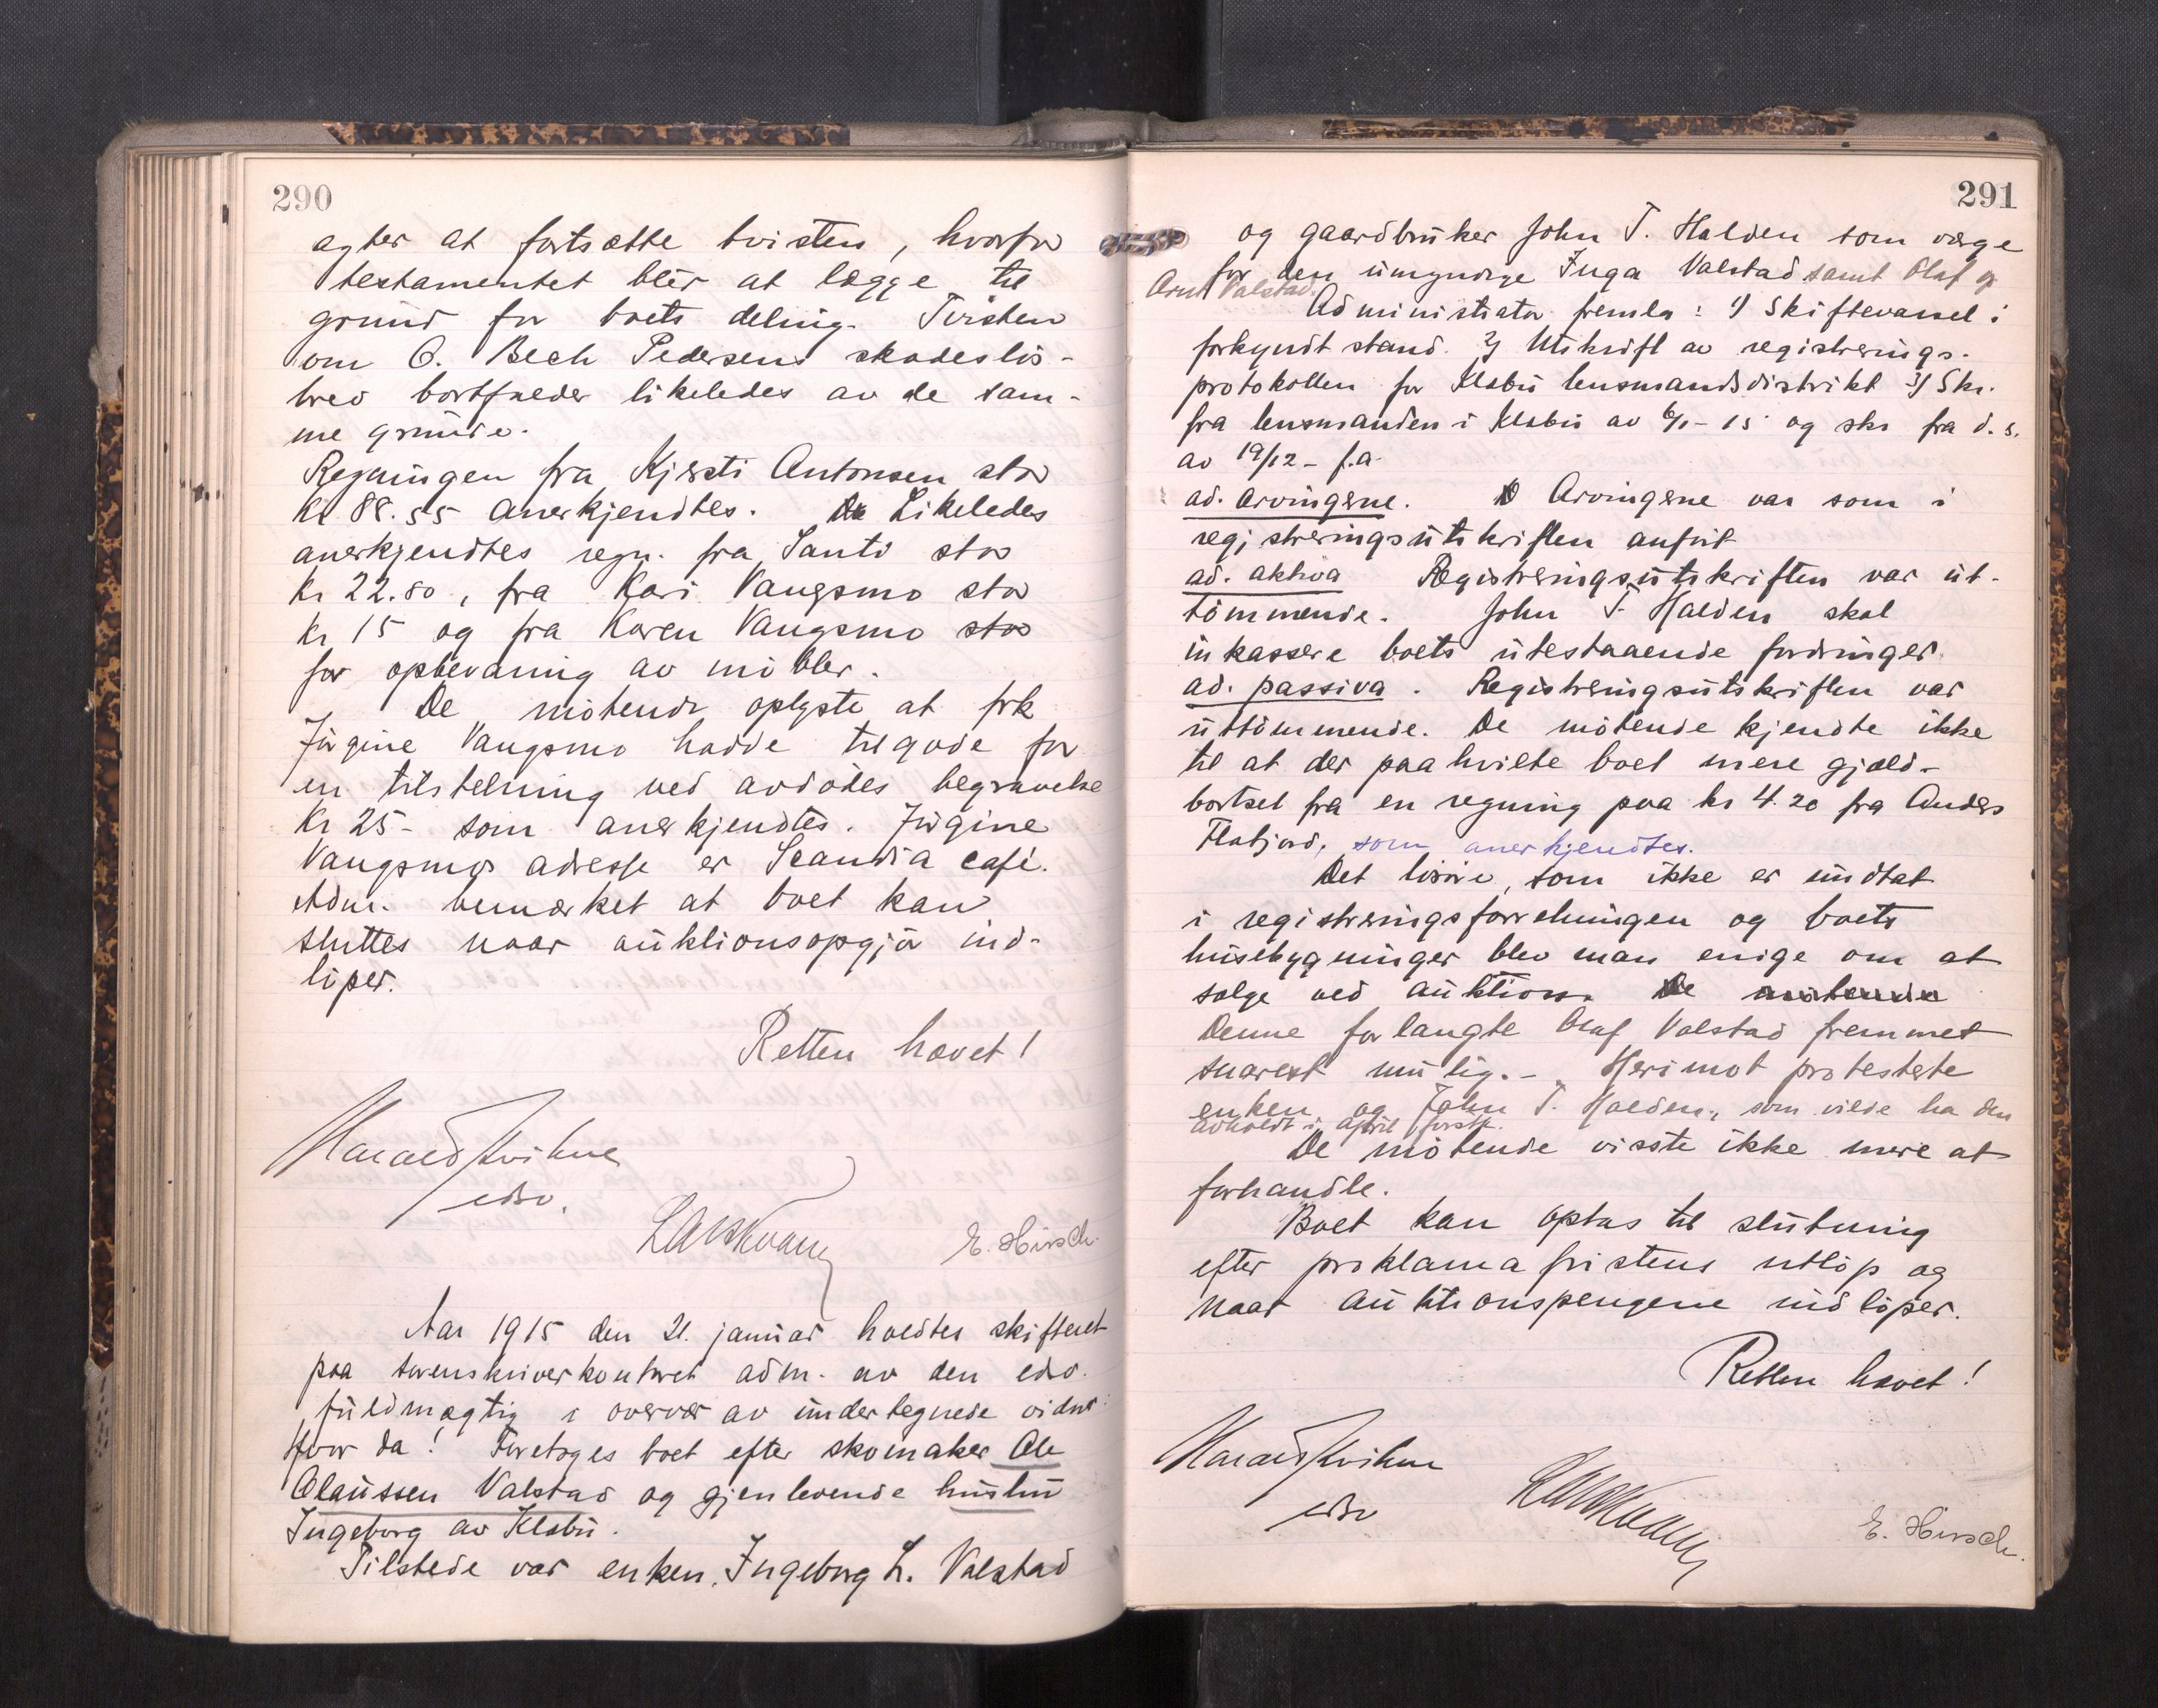 290
agter at fortsætte tvisten, hvorfor
testamentet blir at lægge til
grund for boets deling. Tvisten
om O. Bech Pedersens skadeslös-
brev bortfalder likeledes av de sam-
me grunde.
Regningen fra Kjersti Antonsen stor
kr 88.55 anerkjendtes. Likeledes
anerkjendtes regn. fra Santi stor
kr 22.80, fra Kari Vangsmo stor
kr 15 og fra Karen Vangsmo stor
for opbevaring av möbler.
De mötende oplyste at frk
Jörgine Vangsmo hadde tilgode for
en tilstelning ved avdödes begravelse
kr 25- som anerkjendtes. Jörgine
Vangsmos adresse er Scandia café.
Adm. bemærket at boet kan
sluttes naar auktionsopgjör ind-
löper.
Retten hævet!
Harald Kvihne
edsv.
E. Hirsch.
Aar 1915 den 21. januar holdtes skifteret
paa sorenskriverkontoret adm. av den edsv.
fuldmægtig i overvær av undertegnede vidner:
Hvor da! Foretoges boet efter skomaker Ole
Olaussen Valstad og gjenlevende hustru
Ingeborg av Klæbu.
Tilstede var enken, Ingeborg L. Valstad
291
og gaardbruker John T. Halden som værge
for den umyndige Inga Valstad samt Olaf og
Arnt Valstad.
Administrator fremla: 1) Skiftevarsel i
forkyndt stand. 2) Utskrift av registrerings-
protokollen for Klæbu lensmandsdistrikt 3) Skr.
fra lensmanden i Klæbu av 6/1-15 og skr fra d.s.
av 19/12- f.a.
ad. arvingerne. Arvingerne var som i
registreringsutskriften anfört
ad. aktiva Registreringsutskriften var ut-
tömmende. John T. Halden skal
inkassere boets utestaaende fordringer.
ad. passiva. Registreringsutskriften var
uttömmende. De mötende kjendte ikke
til at der paahvilte boet mere gjæld-
bortset fra en regning paa kr 4.20 fra Anders
Flatjord, som anerkjendtes.
Det lösöre, som ikke er undtat
i registreringsforretningen og boets
husebygninger blev man enige om at
sælge ved auktion. De mötende
Denne forlangte Olaf Valstad fremmet
snarest mulig.- Herimot protesterte
enken og John T. Halden, som vilde ha den
avholdt i april förstk.
De mötende visste ikke mere at
forhandle.
Boet kan optas til slutning
efter proklamafristens utlöp og
naar auktionspengene indlöper.
Retten hævet!
Harald Kvihne
edsv
E. Hirsch.